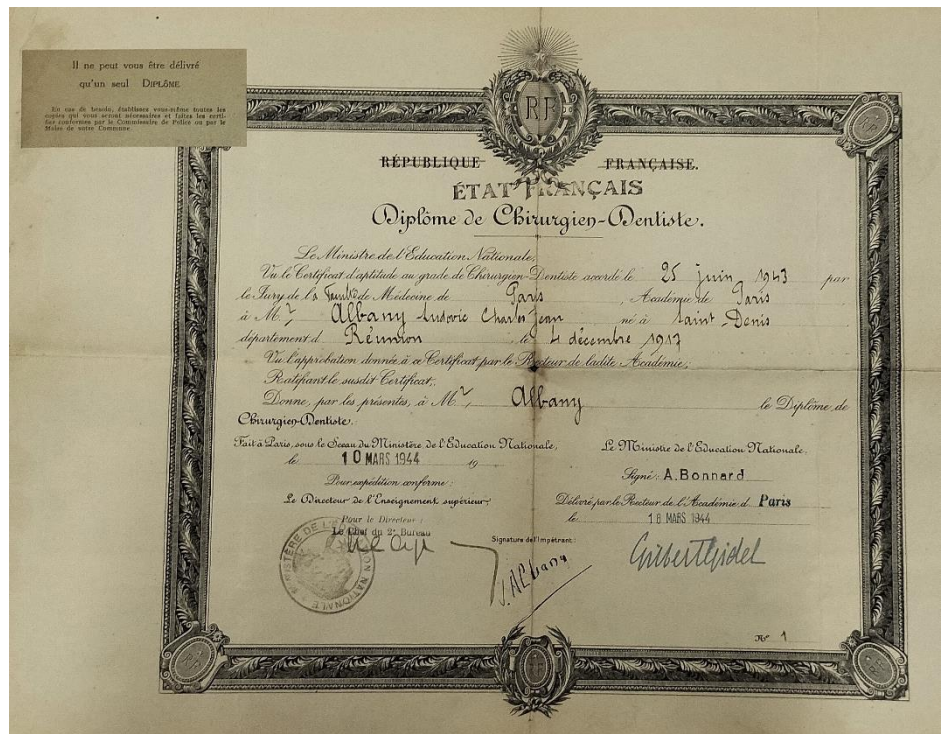 Il ne peut vous être délivré
qu'un seul DIPLÔME
En cas de besoin, établissez vous-même toutes les
copies qui vous seront nécessaires et faites les certi-
fier conformes par le Commissaire de Police ou par le
Maire de votre Commune
RF
RÉPUBLIQUE FRANÇAISE.
ÉTAT FRANÇAIS
Diplôme de Chirurgien-Dentiste.
Le Ministre de l'Education Nationale,
Vu le Certificat d'aptitude au grade de Chirurgien-Dentiste accordé le 25 juin 1943 par
le Jury de la Faculté de Médecine de Paris, Académie de Paris
à Mr Albany Ludovic Charles Jean né à Saint-Denis
département d Réunion, le 4 décembre 1917
Vu l'approbation donnée à ce Certificat par le Recteur de ladite Académie;
Ratifiant le susdit Certificat,
Donne, par les présentes, à Mr Albany le Diplôme de
Chirurgien-Dentiste.
Fait à Paris, sous le Sceau du Ministère de l'Education Nationale,
le 10 MARS 1944 19
Pour expédition conforme:
Le Directeur de l'Enseignement supérieur,
Pour le Directeur:
Le Chef du 2e Bureau
MINISTÈRE DE L'ÉDUCATION NATIONALE
Signature de l'Impétrant:
J. Albany
Le Ministre de l'Education Nationale.
Signé: A. Bonnard
Délivré par le Recteur de l'Académie d Paris
le 16 MARS 1944
Gilbert Gidel
No 1